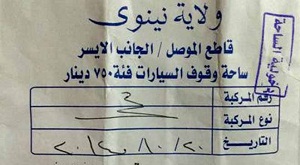 ولاية نينوى
قاطع الموصل / الجانب الايسر
ساحة وقوف السيارات فئة ٧٥٠ دينار
رقم المركبة ٣
نوع المركبة
التاريخ ٢٠/١٠/٢٠١٤
الساحة